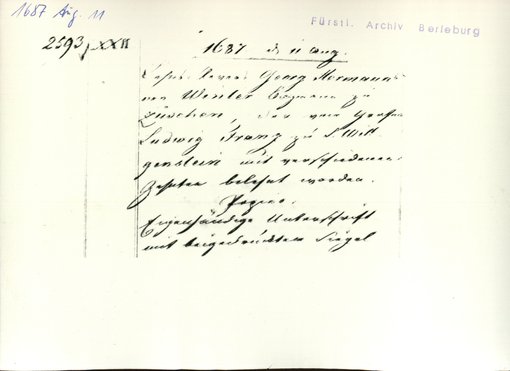 1687 Aug. 11
Fürstl. Archiv Berleburg
2593, XXII
1687 d. 11 Aug.
Georg Hermann
von Winter zu
Züschen, der vom Grafen
Ludwig Franz zu S. Witt
genstein mit verschiedenen
Zehnten belehnt worden.
Eigenhändige Unterschrift
mit beigedrücktem Siegel